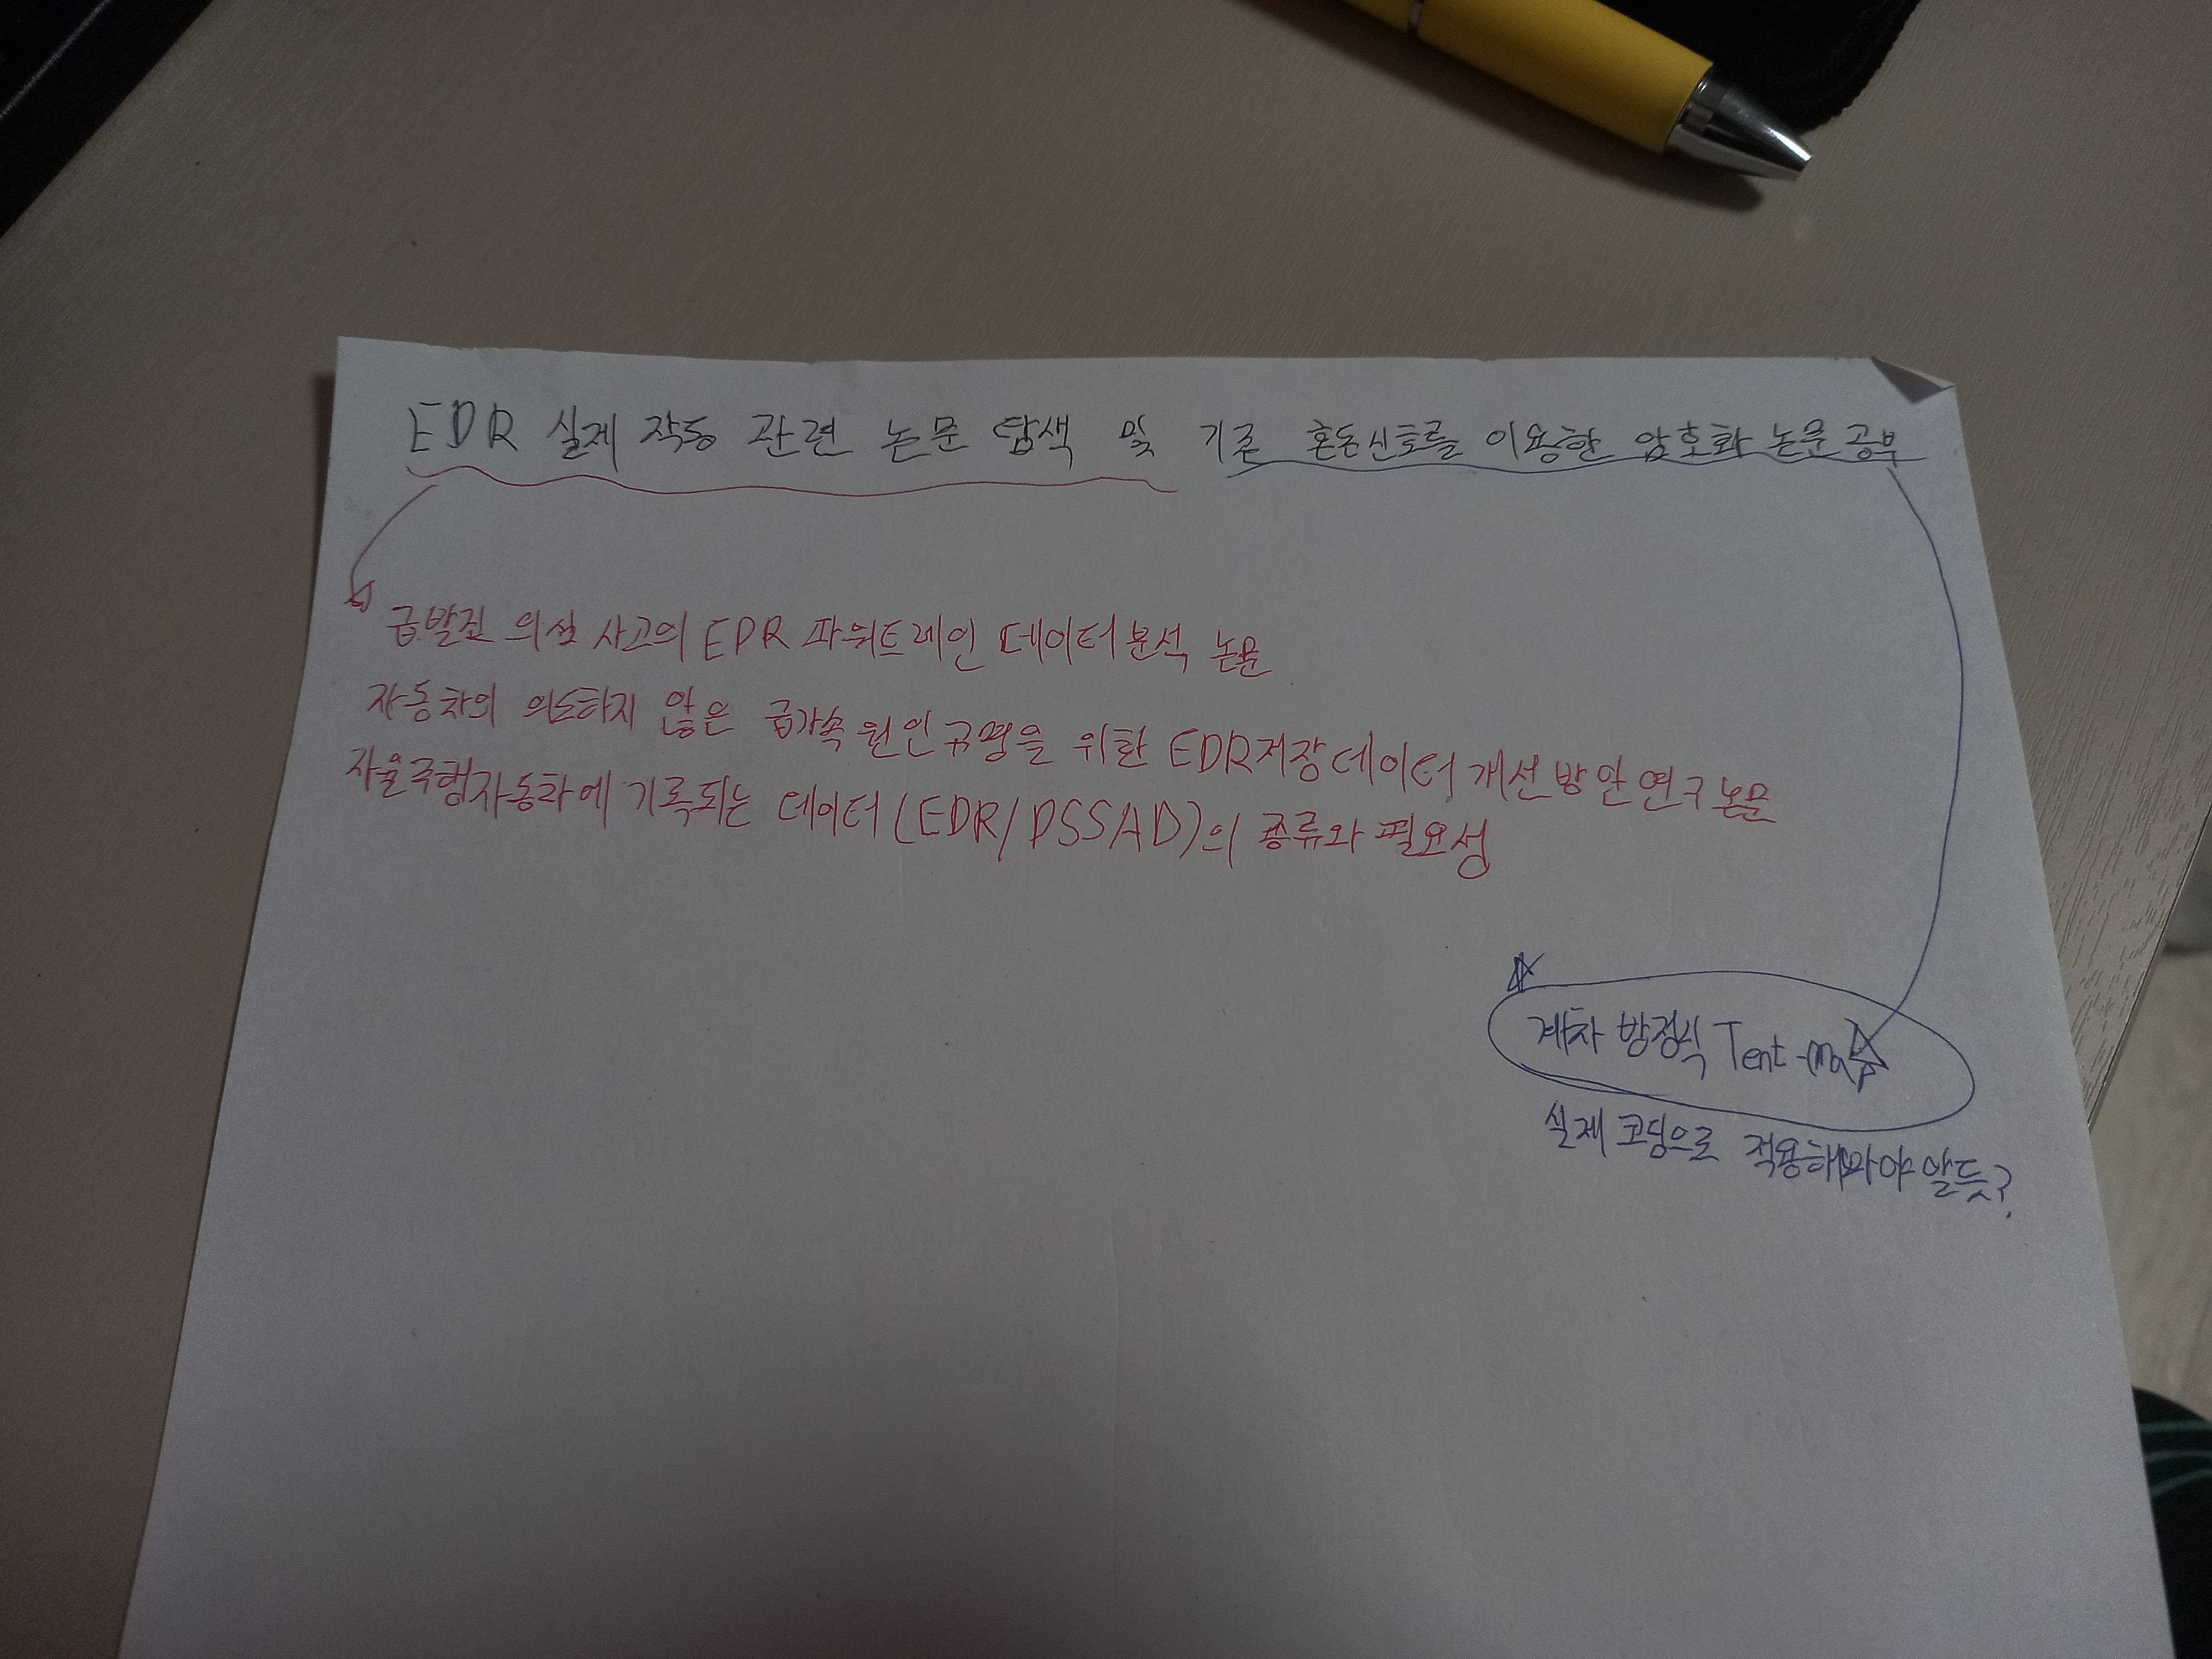 EDR 실제 작동 관련 논문 탐색 및 기존 혼돈신호를 이용한 암호화 논문 공부
급발진 의심 사고의 EDR 파워트레인 데이터 분석 논문
자동차의 의도하지 않은 급가속 원인규명을 위한 EDR저장데이터 개선방안 연구 논문
자율주행자동차에 기록되는 데이터(EDR/DSSAD)의 종류와 필요성
계차 방정식 Tent-map
실제 고정으로 적용해봐야 할듯?